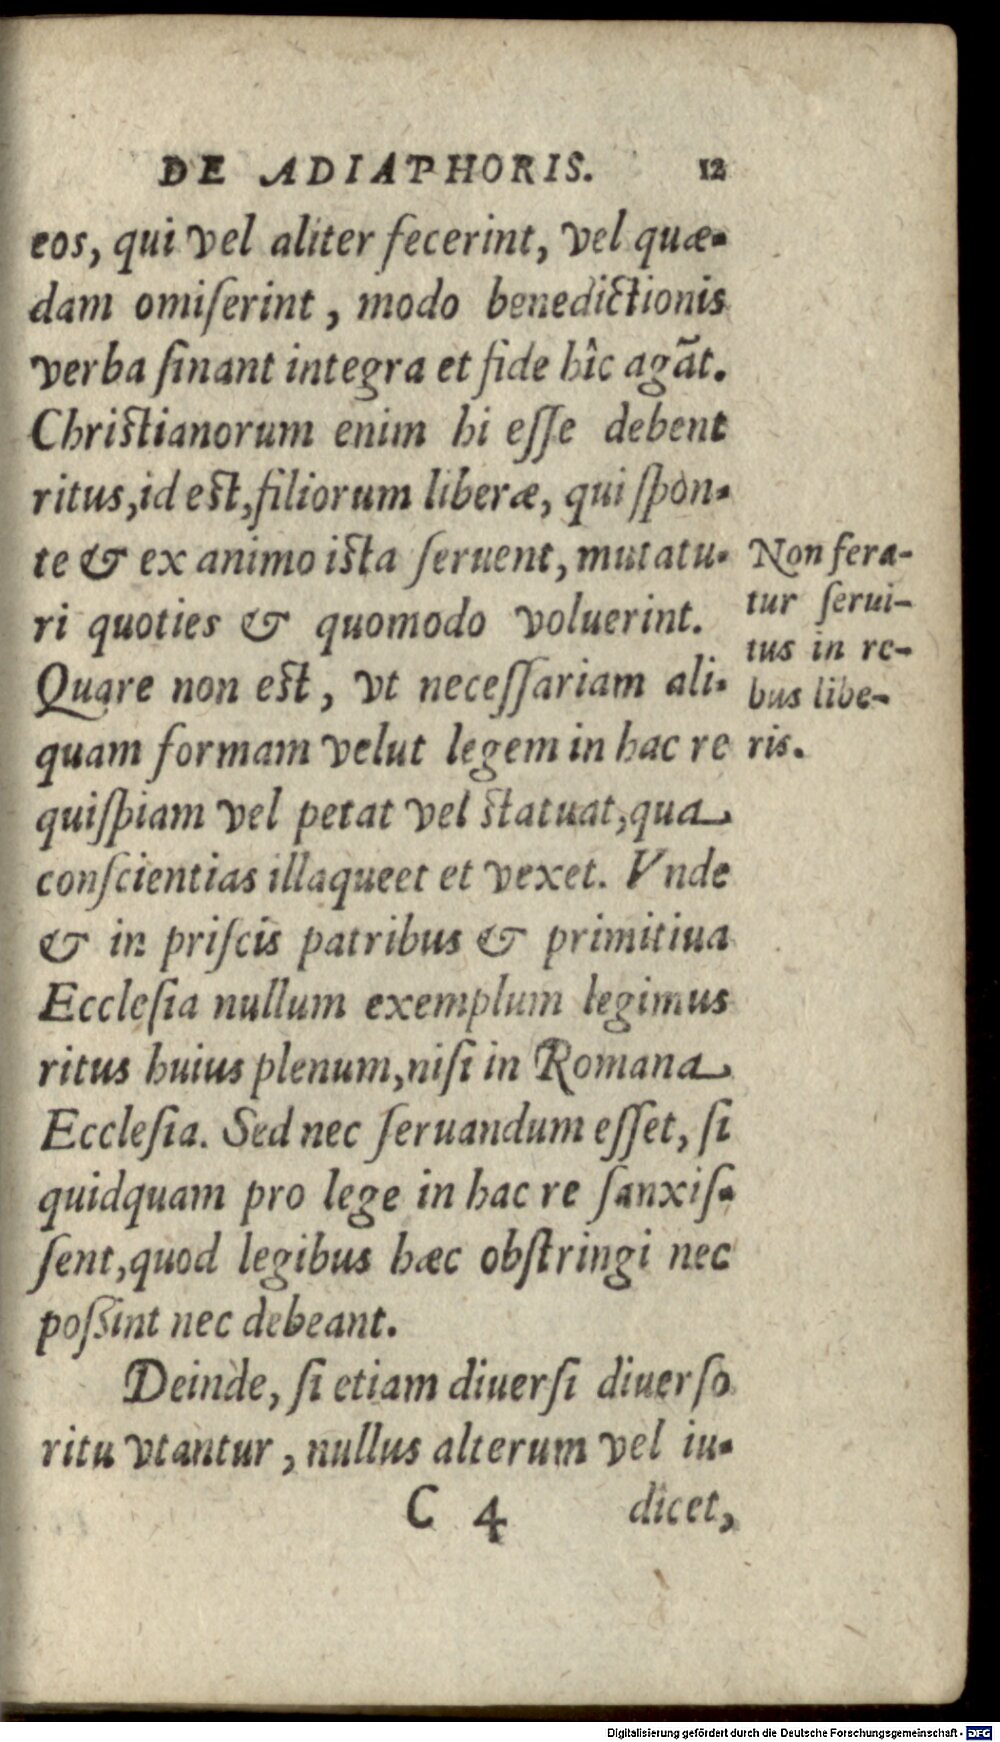 DE ADIAPHORIS. 12
eos, qui vel aliter fecerint, vel quæ-
dam omiſerint, modo benedictionis
verba ſinant integra et fide hîc agãt.
Chriſtianorum enim hi eſſe debent
ritus, id eſt, filiorum liberæ, qui ſpon-
te & ex animo iſta ſeruent, mutatu-
ri quoties & quomodo voluerint.
Quare non eſt, vt neceſſariam ali-
quam formam velut legem in hac re
quiſpiam vel petat vel ſtatuat, qua
conſcientias illaqueet et vexet. Vnde
& in priſcis patribus & primitiua
Eccleſia nullum exemplum legimus
ritus huius plenum, niſi in Romana
Eccleſia. Sed nec ſeruandum eſſet, ſi
quidquam pro lege in hac re ſanxiſ-
ſent, quod legibus hæc obſtringi nec
poßint nec debeant.
Deinde, ſi etiam diuerſi diuerſo
ritu vtantur, nullus alterum vel iu-
C 4 dicet,
Non fera-
tur ſerui-
tus in re-
bus libe-
ris.
Digitalisierung gefördert durch die Deutsche Forschungsgemeinschaft - DFG